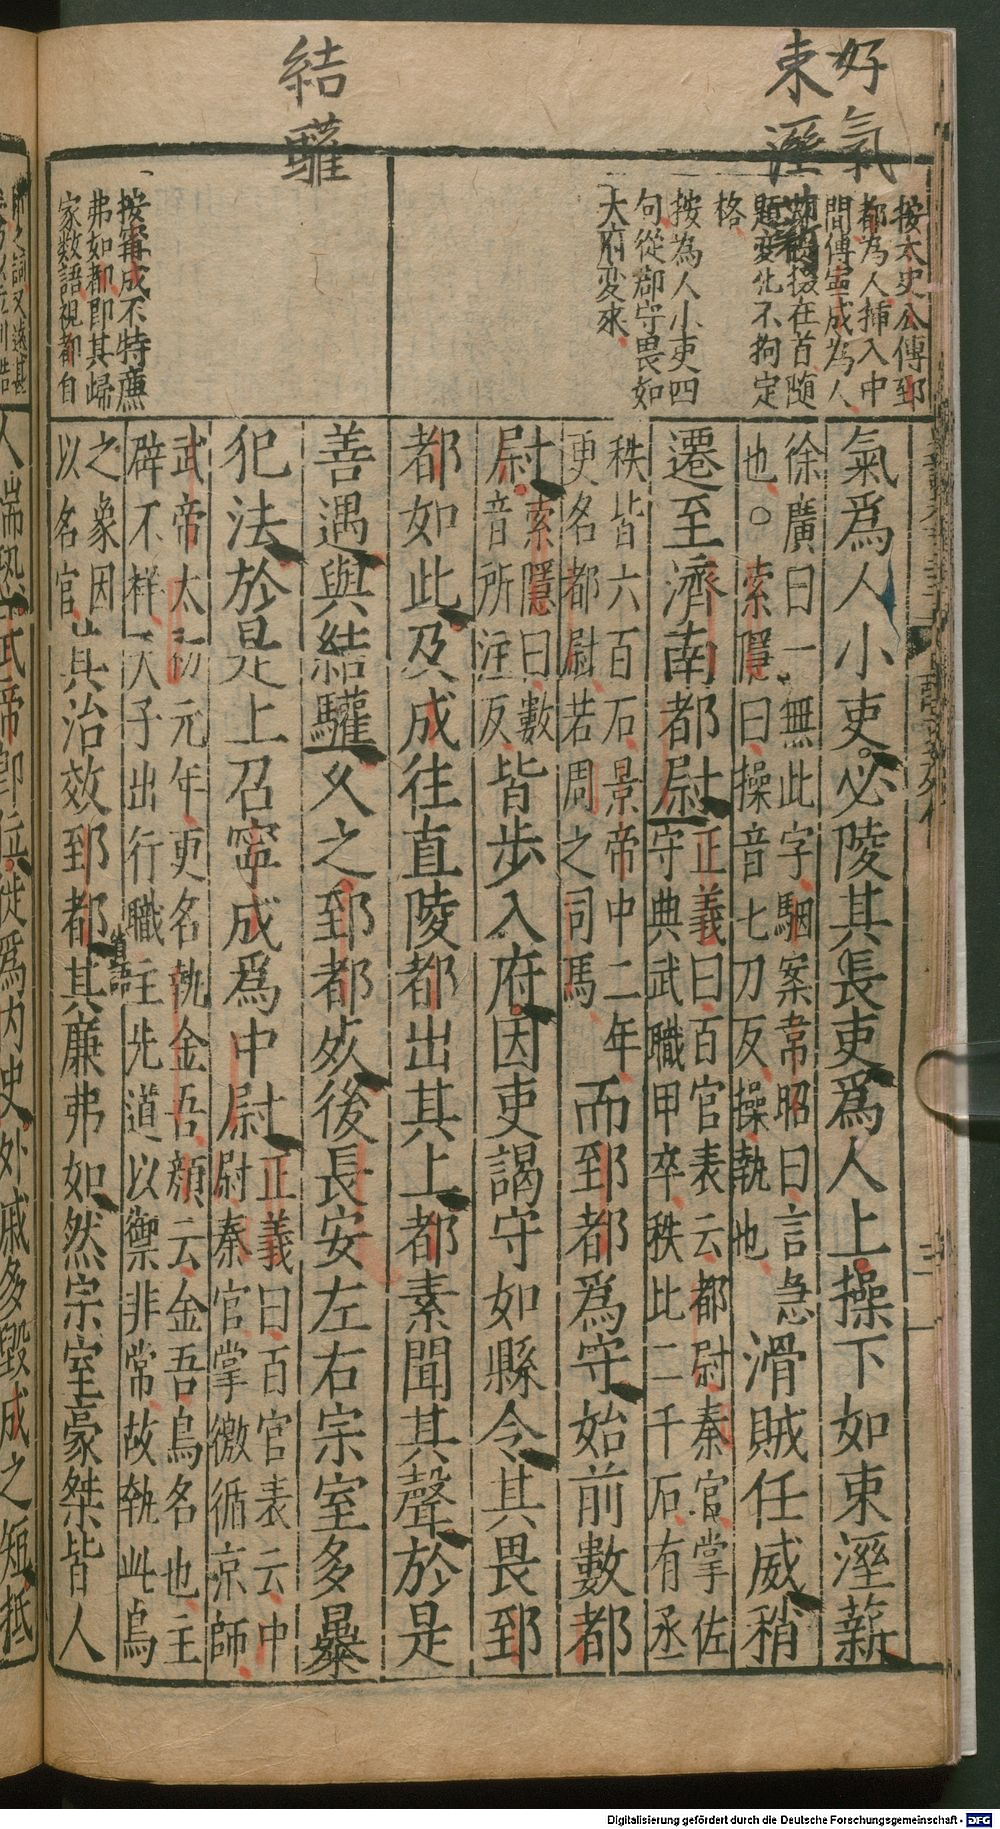 好氣
束溼
結驩
按太史公傳郅
都為人揷入中
間傳甯成為人
却掇在首随
題変化不拘定
格
按為人小吏四
句從郡守畏如
大府変來
按甯成不特㢘
弗如都即其歸
家数語視都自
氣爲人小吏必陵其長吏爲人上操下如束溼薪
徐廣曰一無此字駰案韋昭曰言急
也○索隱曰操音七刀反操執也
滑賊任威稍
遷至濟南都尉
正義曰百官表云都尉秦官掌佐
守典武職甲卒秩比二千石有丞
秩皆六百石景帝中二年
更名都尉若周之司馬
而郅都爲守始前數都
尉
索隱曰數
音所注反
皆步入府因吏謁守如縣令其畏郅
都如此及成往直陵都出其上都素聞其聲於是
善遇與結驩久之郅都死後長安左右宗室多暴
犯法於是上召寧成爲中尉
正義曰百官表云中
尉秦官掌徼循京師
武帝太初元年更名執金吾顔云金吾鳥名也主
辟不祥天子出行職主先道以禦非常故執此鳥
之象因
以名官
其治效郅都其廉弗如然宗室豪桀皆人
省語
人惴恐武帝卽位徙爲内史外戚多毀成之短抵
Digitalisierung gefördert durch die Deutsche Forschungsgemeinschaft - DFG